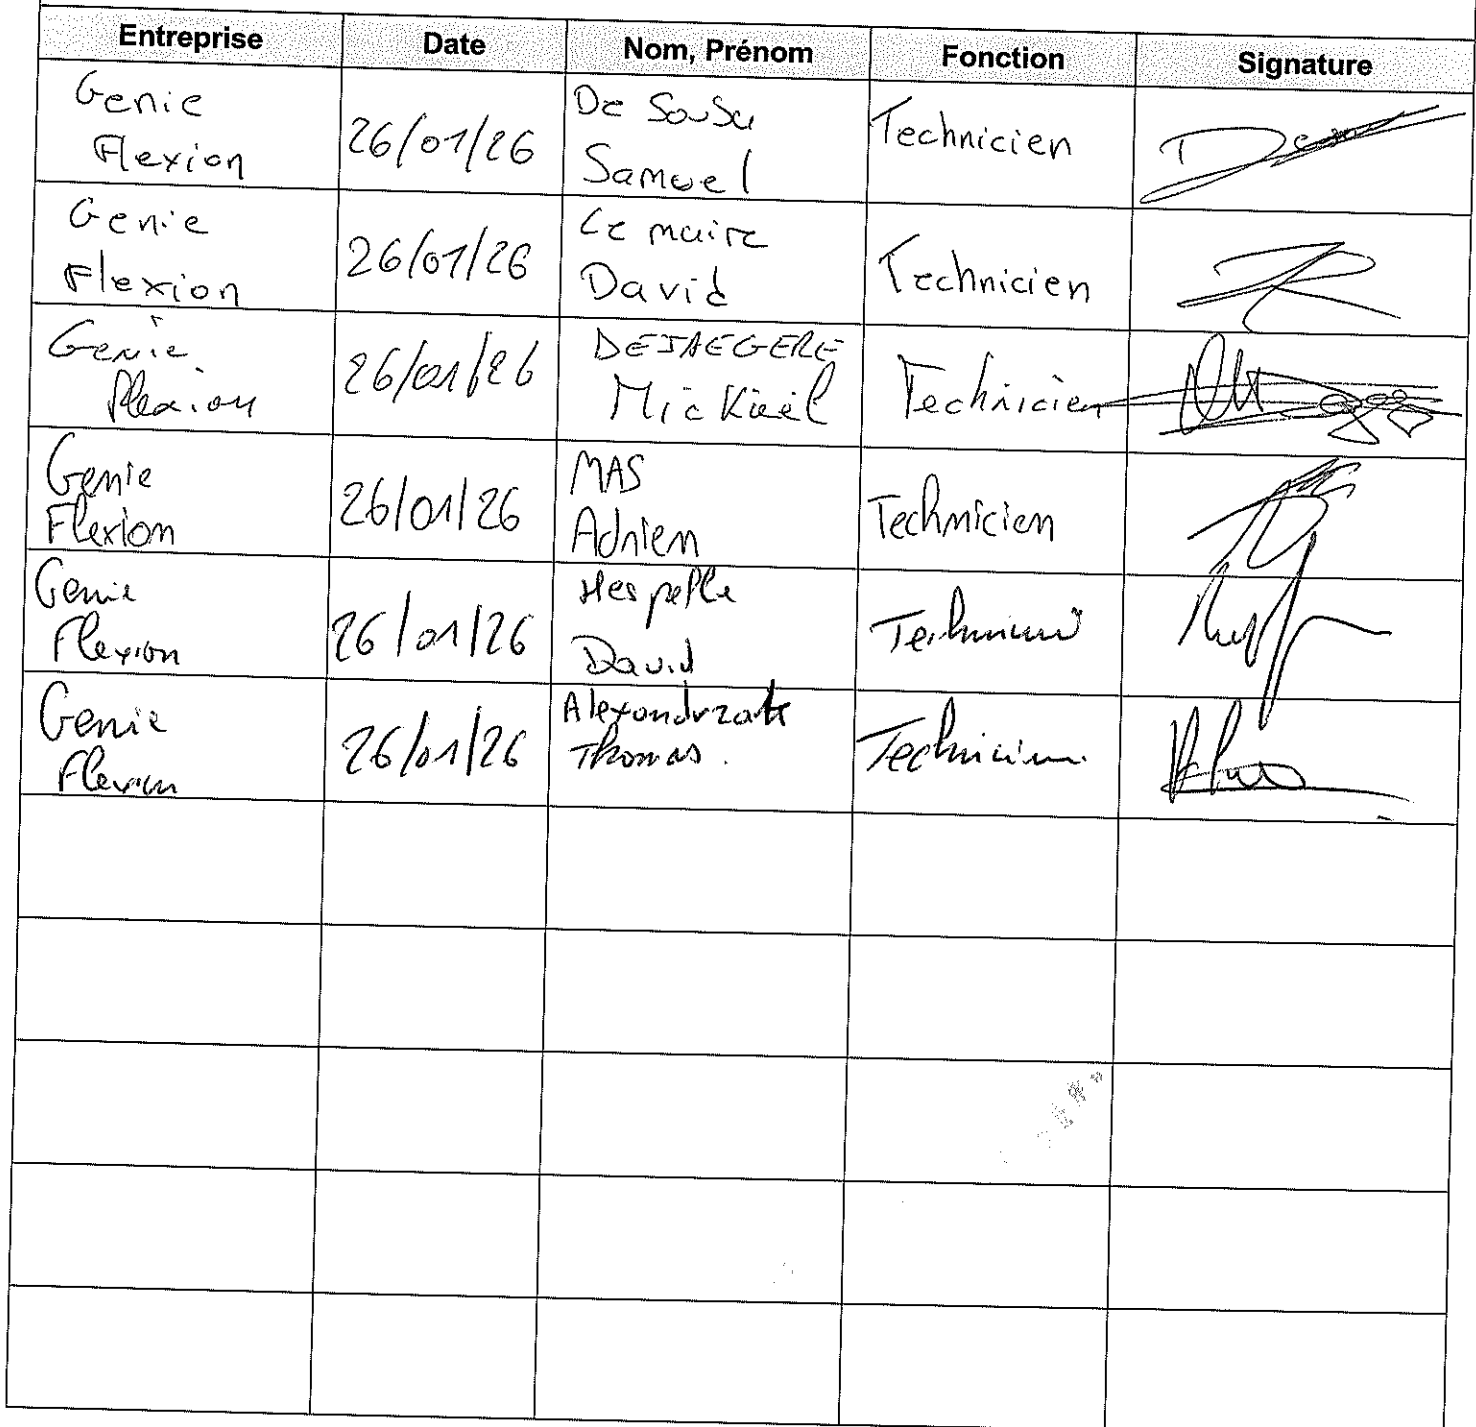 Entreprise Date Nom, Prénom Fonction Signature
Genie
Flexion
26/01/26
De Sousa
Samuel
Technicien
Genie
Flexion
26/01/26
Le maire
David
Technicien
Genie
flexion
26/01/26
DEJAEGERE
Mickaël
Technicien
Genie
Flexion
26/01/26
MAS
Adrien
Technicien
Genie
Flexion
26/01/26
Hespelle
David
Technicien
Genie
Flexion
26/01/26
Thomas.
Technicien.